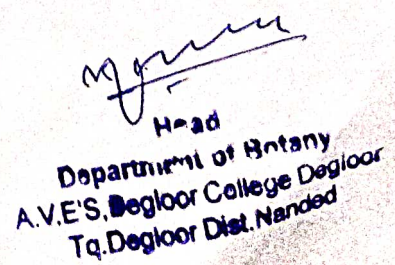 Head
Department of Botany
A.V.E'S, Degloor College Degloor
Tq.Degloor Dist.Nanded